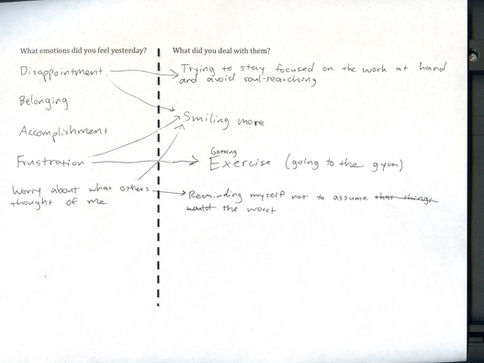 What emotions did you feel yesterday?
What did you deal with them?
Disappointment
Trying to stay focused on the work at hand
and avoid soul-searching
Belonging
Smiling more
Accomplishment
Getting
Frustration
Exercise (going to the gym)
Worry about what others
thought of me
Reminding myself not to assume that things
would the worst